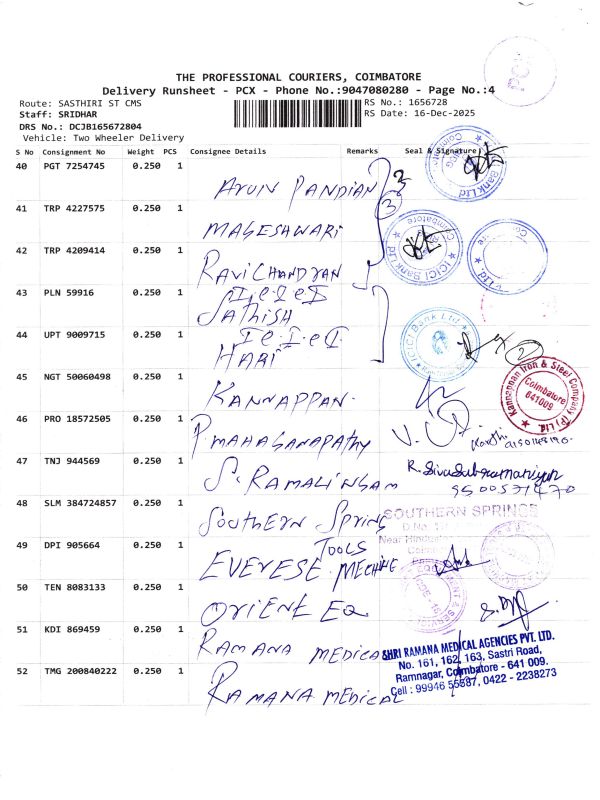 THE PROFESSIONAL COURIERS, COIMBATORE
Delivery Runsheet - PCX - Phone No.:9047080280 - Page No.:4
Route: SASTHIRI ST CMS
RS No.: 1656728
Staff: SRIDHAR
RS Date: 16-Dec-2025
DRS No.: DCJB165672804
Vehicle: Two Wheeler Delivery
S No Consignment No Weight PCS Consignee Details Remarks Seal & Signature
40 PGT 7254745 0.250 1 ARUN PANDIAN
3
41 TRP 4227575 0.250 1 MAGESHWARI
42 TRP 4209414 0.250 1 RAVICHANDRAN
ICICI Bank Ltd
Coimbatore
43 PLN 59916 0.250 1 SATHISH
44 UPT 9009715 0.250 1 HARI
ICICI Bank Ltd
2
45 NGT 50060498 0.250 1 KANNAPPAN
Kannappan Iron & Steel Company (P) Ltd.
Coimbatore
641009
46 PRO 18572505 0.250 1 P. MAHAGANAPATHY
47 TNJ 944569 0.250 1 S. RAMALINGAM
R. Sivasubramaniyan
9500531470
48 SLM 384724857 0.250 1 SOUTHERN SPRING
SOUTHERN SPRINGS
49 DPI 905664 0.250 1 EVERESE MECHINE TOOLS
50 TEN 8083133 0.250 1 ORIENT EQ
51 KDI 869459 0.250 1 RAMANA MEDICAL
52 TMG 200840222 0.250 1 RAMANA MEDICAL
SHRI RAMANA MEDICAL AGENCIES PVT. LTD.
No. 161, 162, 163, Sastri Road,
Ramnagar, Coimbatore - 641 009.
Cell : 99946 55587, 0422 - 2238273